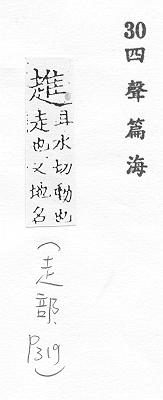 30四聲篇海
趡
且水切動也
走也又地名
(走部, P319)